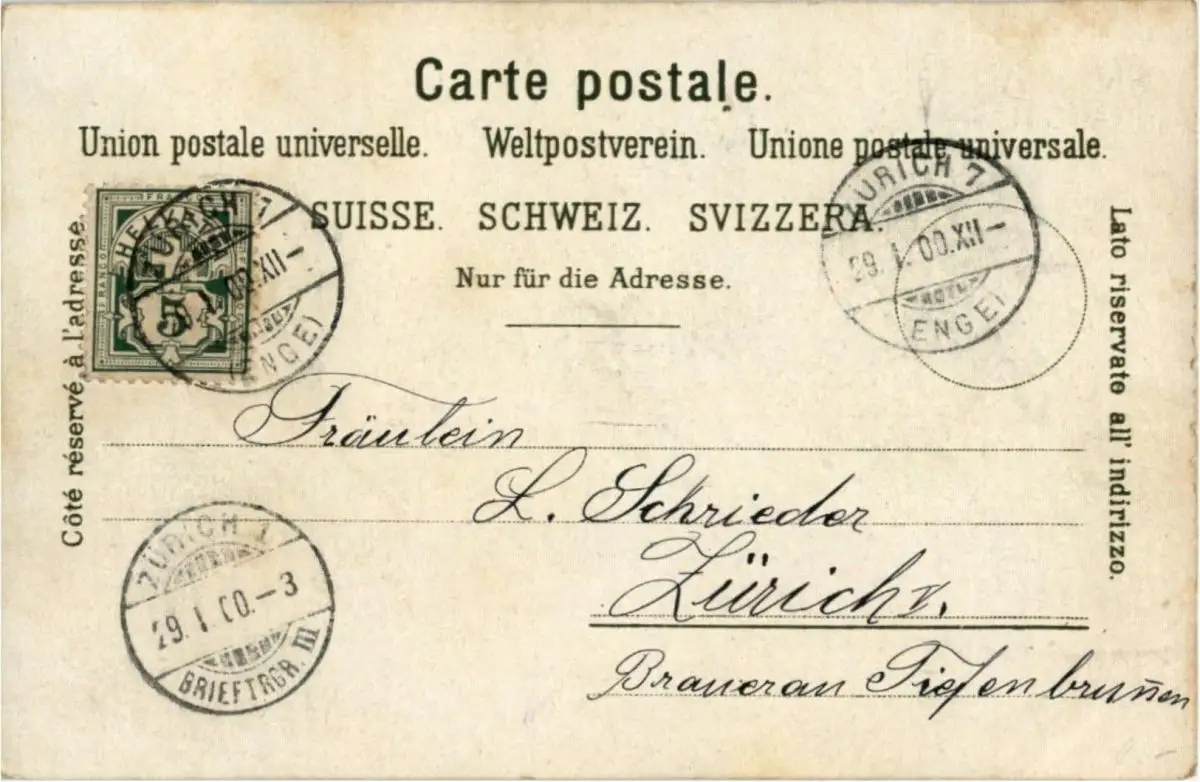 Carte postale.
Union postale universelle. Weltpostverein. Unione postale universale.
SUISSE. SCHWEIZ. SVIZZERA.
Nur für die Adresse.
Côté réservé à l'adresse.
Lato riservato all' indirizzo.
FRANCO
HELVETIA
5
ZÜRICH 7
00.XII-
(ENGE)
ZÜRICH 7
29. I. 00.XII-
(ENGE)
Fräulein
L. Schrieder
Zürich V.
Brauerau Tiefenbrunnen
ZÜRICH 1
29. I. 00.-3
BRIEFTRGR. III